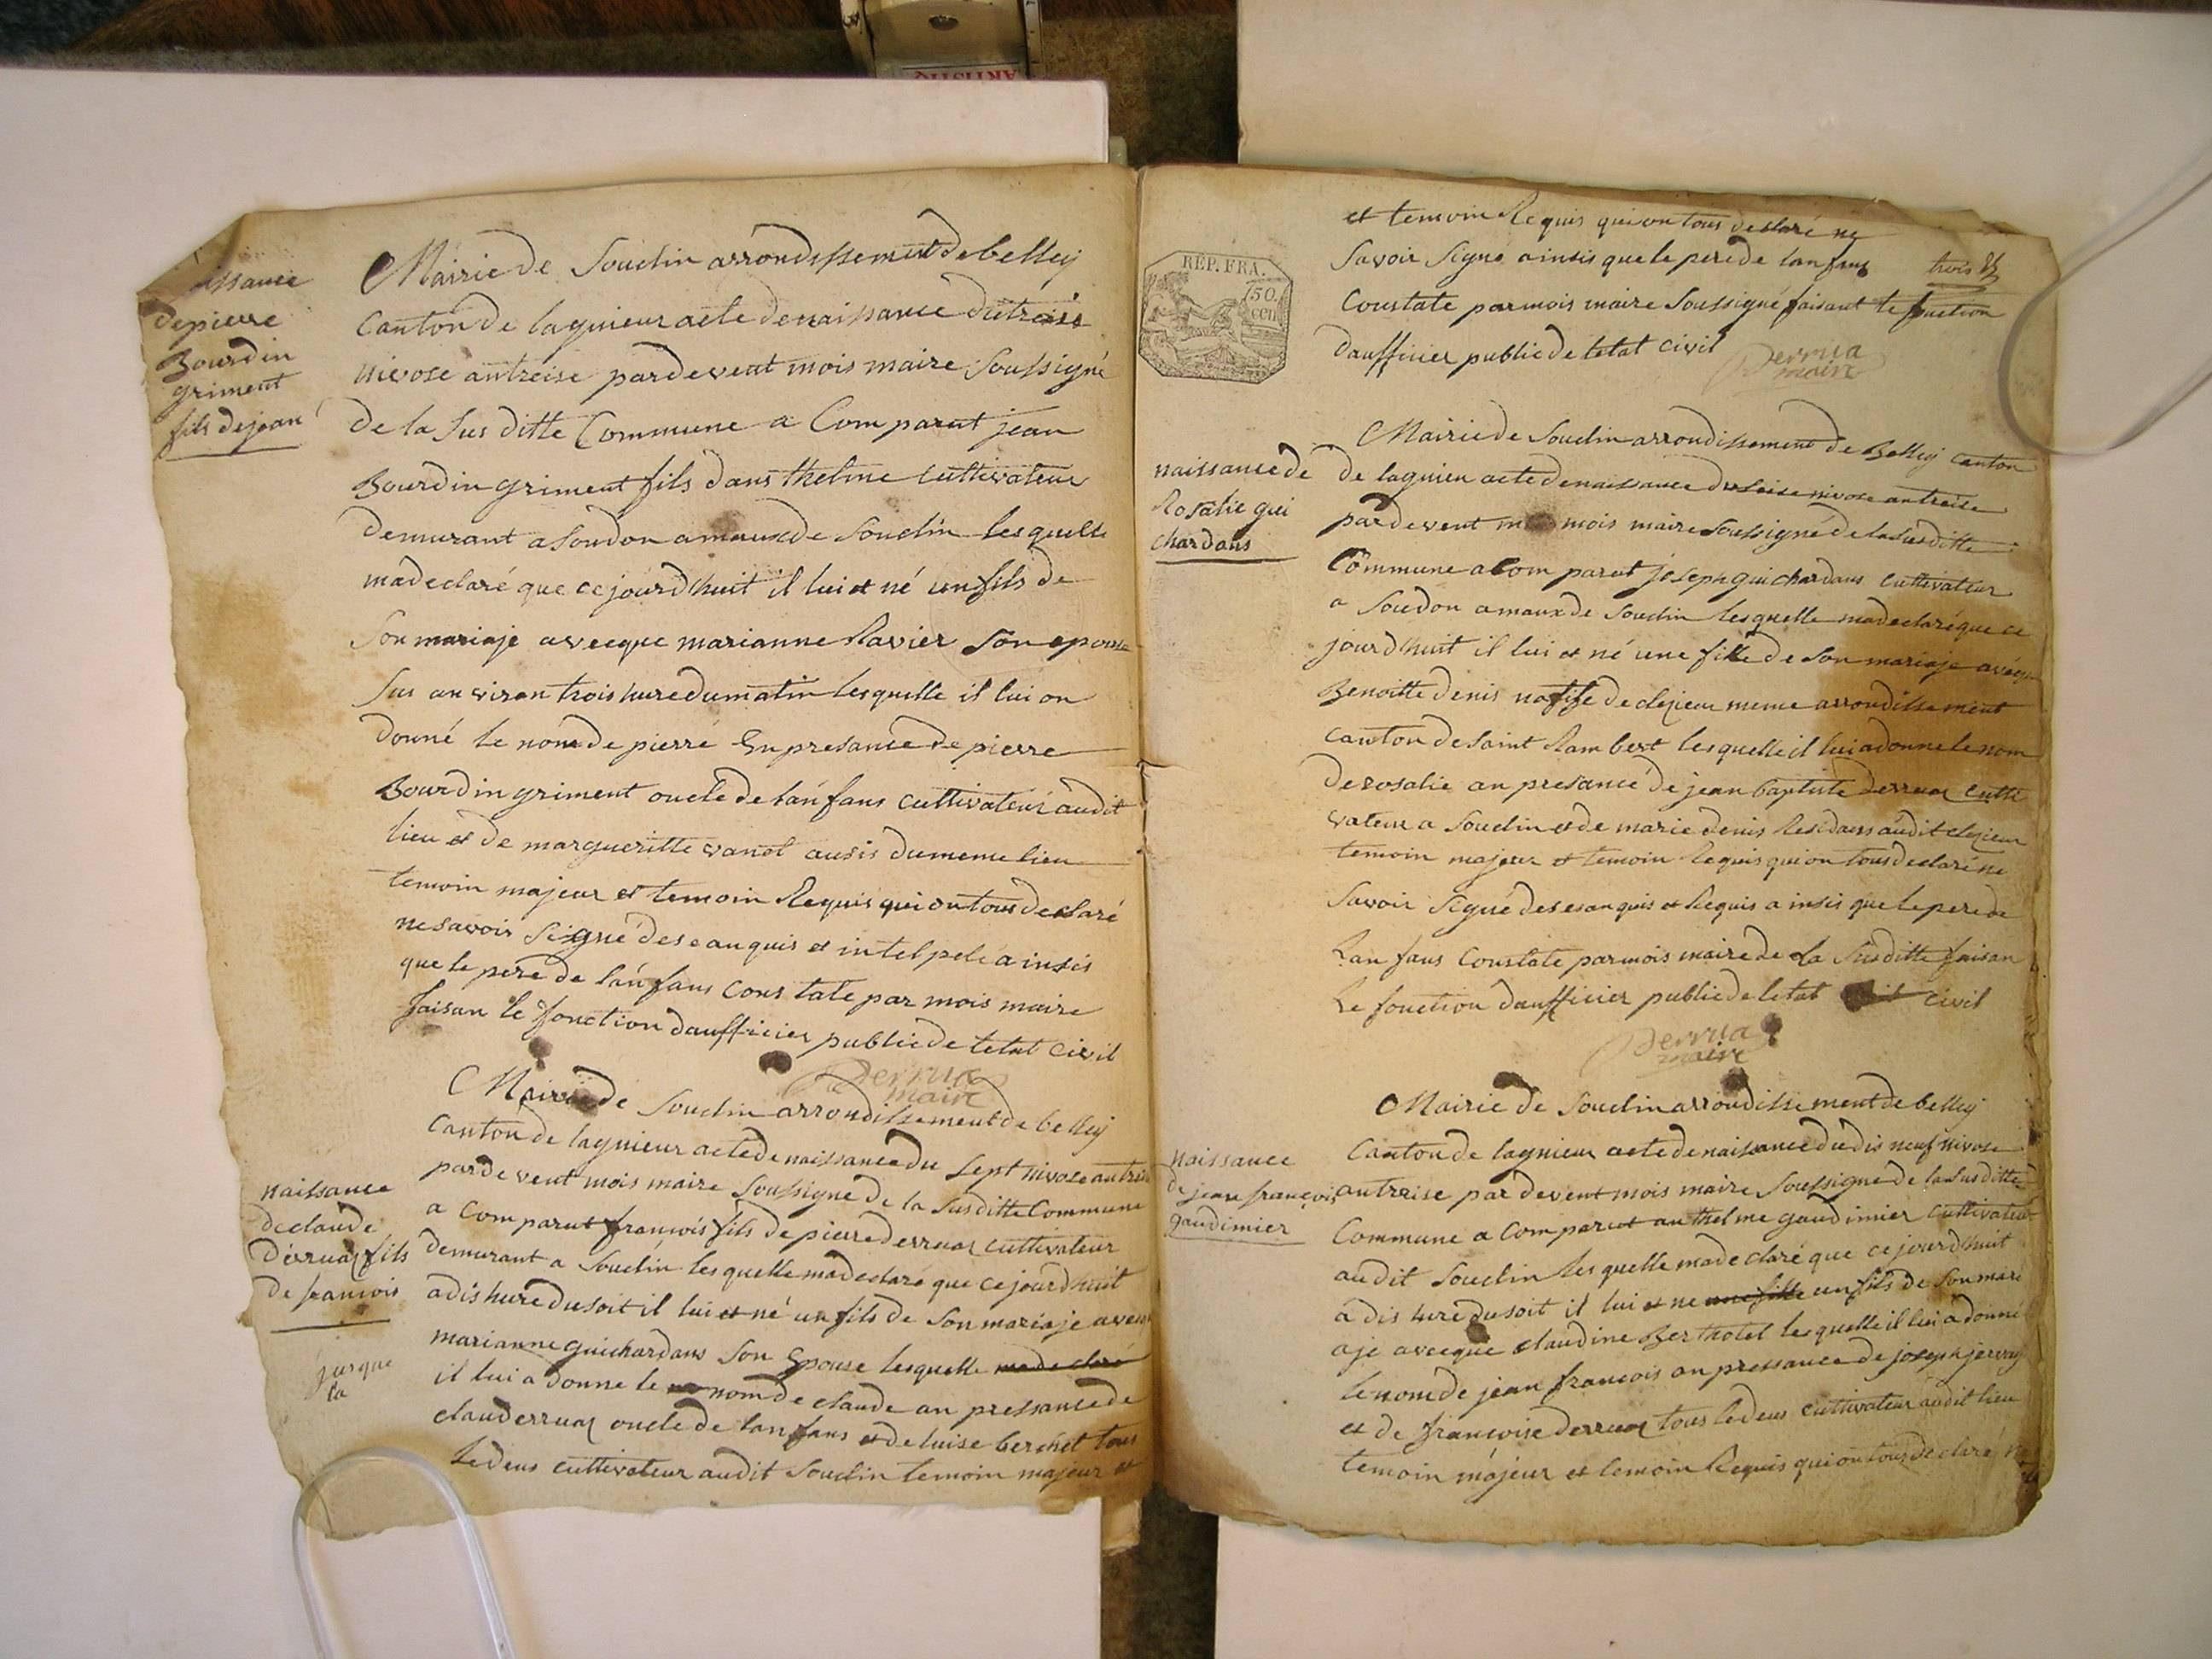 ARTISTIQ
issance
depierre
Bourdin
griment
fils dejean
Mairie de Souclin arrondissement de belley
Canton de lagnieur acte denaissance du trois
nivose antreise pardevent mois maire Soussigné
de la Sus ditte Commune a Comparut jean
Bourdin griment fils dans thelme Cultivateur
demurant a Soudon amaux de Souclin lesquelle
madeclaré que cejourdhuit il lui et né un fils de
Son mariaje avecque marianne Ravier Son epouse
Sus anviron trois hure dumatin lesquelle il lui on
donné le nom de pierre En presance de pierre
Bourdin griment oncle de lanfans cultivateur audit
lieu et de margueritte vanot ausis dumeme lieu
temoin majeur et temoin Requis qui on tous declaré
ne savoir Seigné deseanquis et intelpelé ainsis
que le pere de lanfans Constate par mois maire
faisan le fonction daufficier public de letat Civil
Derrua
maire
naissance
declaude
derruaz fils
de francois
jurque
la
Mairie de Souclin arrondissement de belley
Canton de lagnieur acte de naissance du Sept nivose antreise
pardevent mois maire Soussigné de la Susditte Commune
a Comparut francois fils de pierre derruaz cultivateur
demurant a Souclin lesquelle madeclaré que cejourdhuit
adis hure dusoit il lui et né un fils de Son mariaje avecque
marianne guichardans Son Epouse lesquelle madeclaré
il lui a donne le nom de claude an pressance de
clauderruaz oncle de lanfans et de luise berchet tous
ledeus cultivateur audit Souclin temoin majeur et
REP. FRA.
50.
cen
et temoin Requis qui on tous declaré ne
Savoir Signe ainsis que le pere de lanfans
trois
Constate par mois maire Soussigné faisant le fonction
daufficier public de letat Civil
Derrua
maire
naissance de
Rosalie gui
chardans
Mairie de Souclin arrondissement de Belley Canton
de lagnieu acte denaissance du seise nivose antreise
pardevent mois maire Soussigné de la Susditte
Commune a Comparut joseph guichardans Cultivateur
a Soudon amaux de Souclin lesquelle madeclaré que ce
jourdhuit il lui et né une fille de Son mariaje avecque
Benoitte denis natife de clezieu meme arrondissement
Canton de Saint Rambert lesquelle il lui adonne le nom
de rosalie an presance de jean baptiste derruaz Culti
vateur a Souclin et de marie denis Residans audit clezieu
temoin majeur et temoin Requis qui on tous declaré ne
Savoir Signé deseanquis et Requis ainsis que le pere de
Lanfans Constate parmois maire de la Susditte faisan
Le fonction daufficier public de letat civil
Derrua
maire
naissance
de jean francois
gaudimier
Mairie de Souclin arrondissement de belley
Canton de lagnieur acte de naissance du dis neuf nivose
antreise par devent mois maire Soussigné de la Susditte
Commune a Comparut anthelme gaudimier Cultivateur
audit Souclin lesquelle madeclaré que cejourdhuit
a dis hure dusoit il lui et ne une fille un fils de Son mari
aje avecque claudine Berthotel lesquelle il lui adonné
le nom de jean francois an pressance de joseph
et de francoise derruaz tous ledeus Cultivateur audit lieu
temoin majeur et temoin Requis qui on tous declaré ne